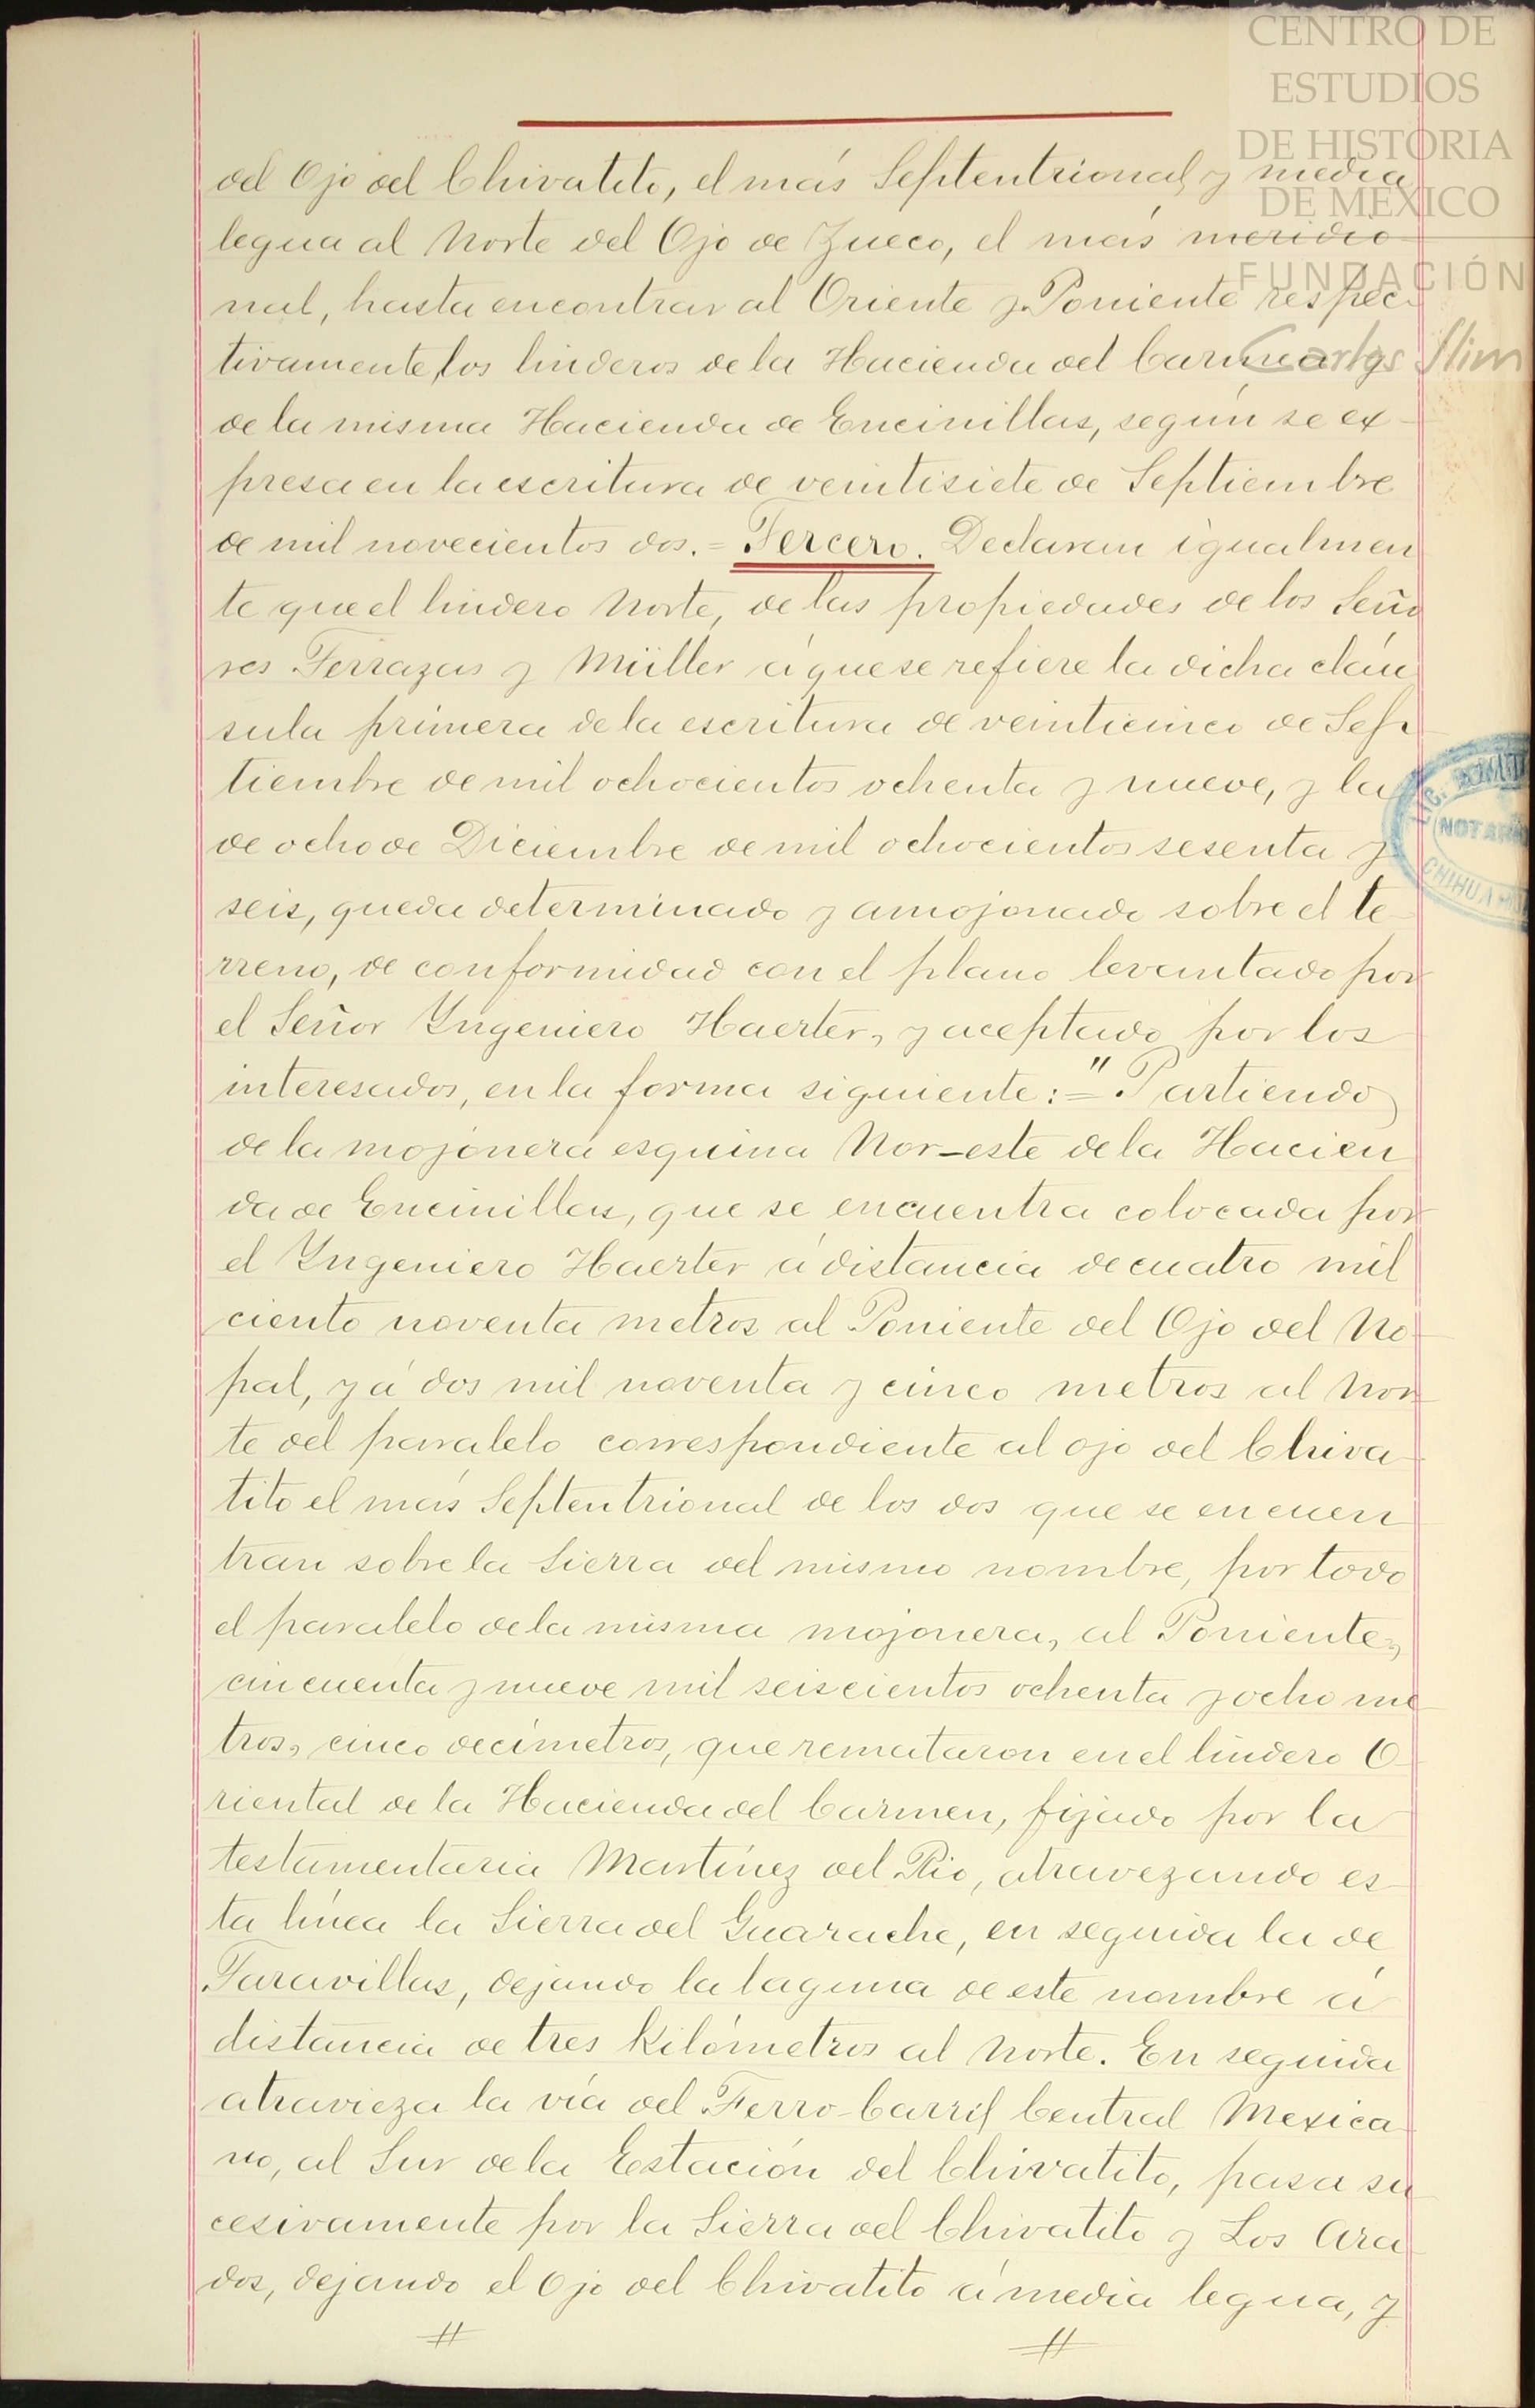 CENTRO DE
ESTUDIOS
DE HISTORIA
DE MÉXICO
FUNDACIÓN
Carlos Slim
del Ojo del Chivatito, el más Septentrional, y media
legua al Norte del Ojo de Zueco, el más meridio-
nal, hasta encontrar al Oriente y Poniente respec-
tivamente, los linderos de la Hacienda del Carmen y
de la misma Hacienda de Encinillas, según se ex-
presa en la escritura de veintisiete de Septiembre
de mil novecientos dos. = Tercero. Declaran igualmen
te que el lindero Norte, de las propiedades de los Seño
res Terrazas y Müller á que se refiere la dicha cláu
sula primera de la escritura de veinticinco de Sep-
tiembre de mil ochocientos ochenta y nueve, y la
de ocho de Diciembre de mil ochocientos sesenta y
seis, queda determinado y amojonado sobre el te-
rreno, de conformidad con el plano levantado por
el Señor Yngeniero Haerter, y aceptado por los
interesados, en la forma siguiente: = "Partiendo
de la mojonera esquina Nor-este de la Hacien
da de Encinillas, que se encuentra colocada por
el Yngeniero Haerter á distancia de cuatro mil
ciento noventa metros al Poniente del Ojo del No-
pal, y á dos mil noventa y cinco metros al Nor-
te del paralelo correspondiente al ojo del Chiva-
tito el más Septentrional de los dos que se encuen
tran sobre la Sierra del mismo nombre, por todo
el paralelo de la misma mojonera, al Poniente,
cincuenta y nueve mil seiscientos ochenta y ocho me-
tros, cinco decímetros, que remataron en el lindero O-
riental de la Hacienda del Carmen, fijado por la
testamentaria Martínez del Rio, atravezando es-
ta línea la Sierra del Guarache, en seguida la de
Taravillas, dejando la laguna de este nombre á
distancia de tres Kilómetros al Norte. En seguida
atravieza la vía del Ferro-Carril Central Mexica-
no, al Sur de la Estación del Chivatito, pasa su
cesivamente por la Sierra del Chivatito y Los Ara
dos, dejando el Ojo del Chivatito á media legua, y
LIC.
NOTA
CHIHUAHUA